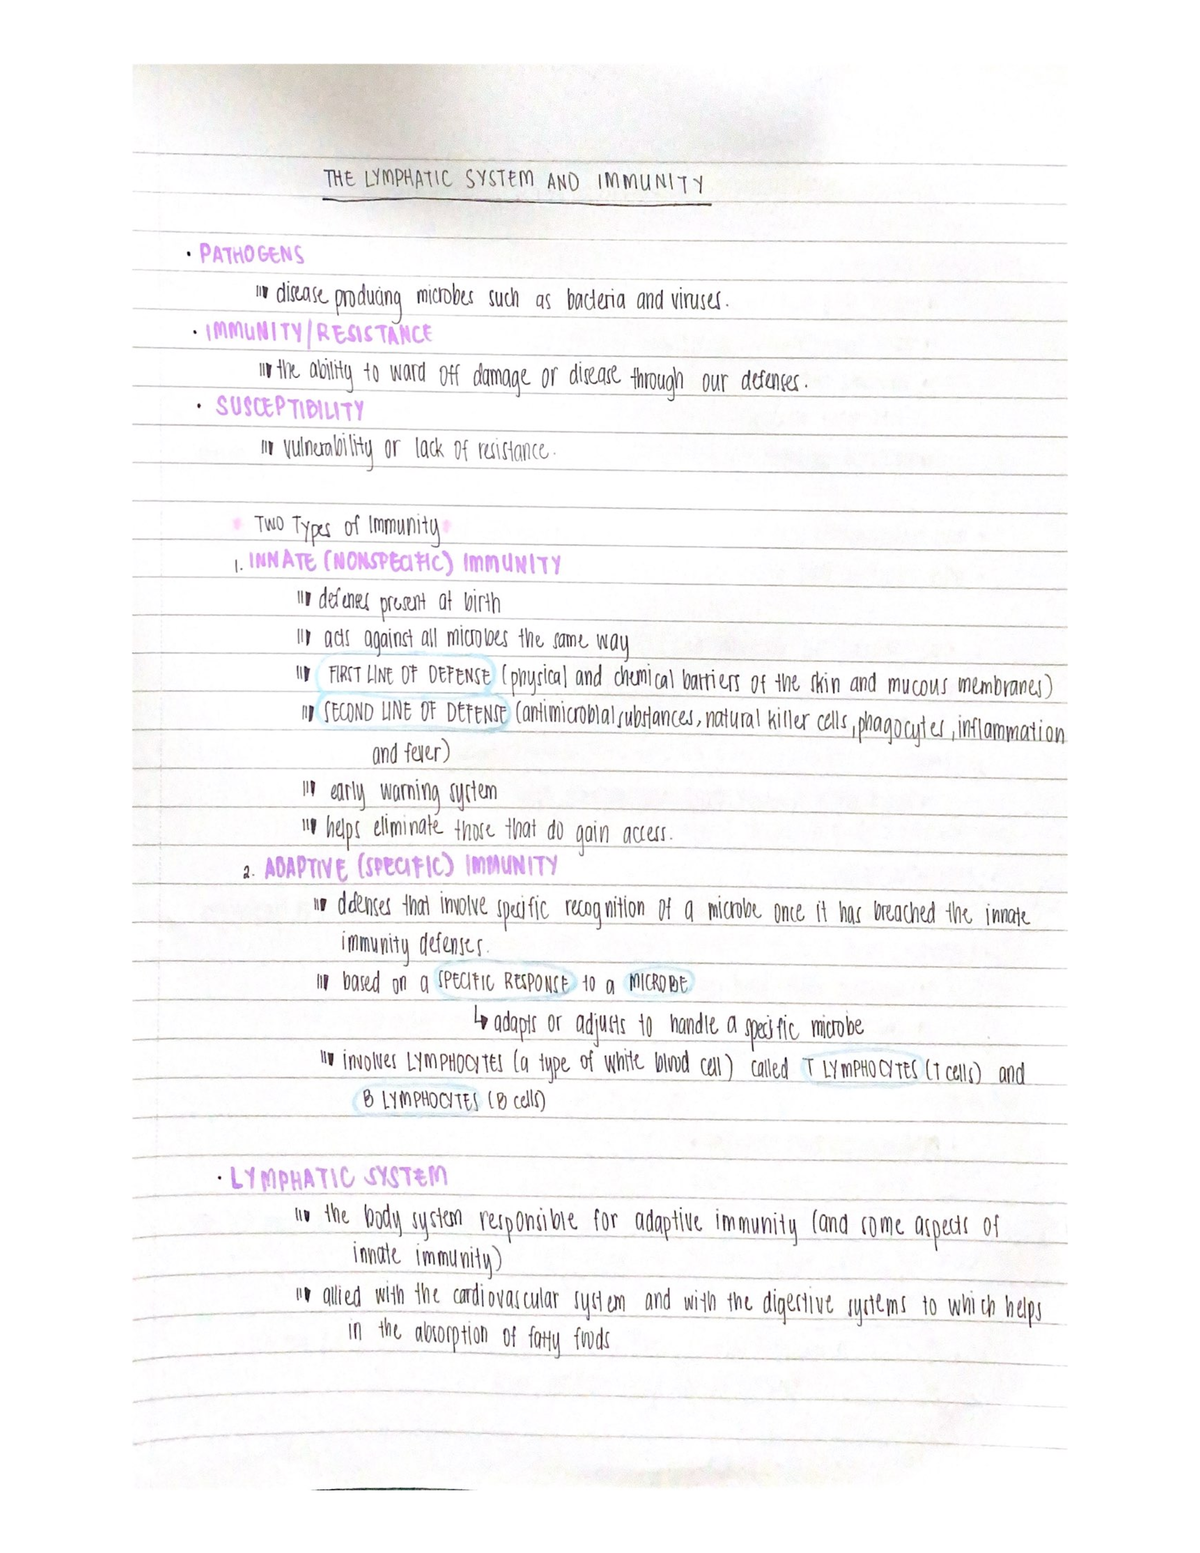 THE LYMPHATIC SYSTEM AND IMMUNITY
• PATHOGENS
disease producing microbes such as bacteria and viruses.
• IMMUNITY/RESISTANCE
the ability to ward off damage or disease through our defenses.
• SUSCEPTIBILITY
vulnerability or lack of resistance.
• Two Types of Immunity •
1. INNATE (NONSPECIFIC) IMMUNITY
defenses present at birth
acts against all microbes the same way
FIRST LINE OF DEFENSE (physical and chemical barriers of the skin and mucous membranes)
SECOND LINE OF DEFENSE (antimicrobial substances, natural killer cells, phagocytes, inflammation
and fever)
early warning system
helps eliminate those that do gain access.
2. ADAPTIVE (SPECIFIC) IMMUNITY
defenses that involve specific recognition of a microbe once it has breached the innate
immunity defenses.
based on a SPECIFIC RESPONSE to a MICROBE
↳ adapts or adjusts to handle a specific microbe
involves LYMPHOCYTES (a type of white blood cell) called T LYMPHOCYTES (T cells) and
B LYMPHOCYTES (B cells)
• LYMPHATIC SYSTEM
the body system responsible for adaptive immunity (and some aspects of
innate immunity)
allied with the cardiovascular system and with the digestive systems to which helps
in the absorption of fatty foods